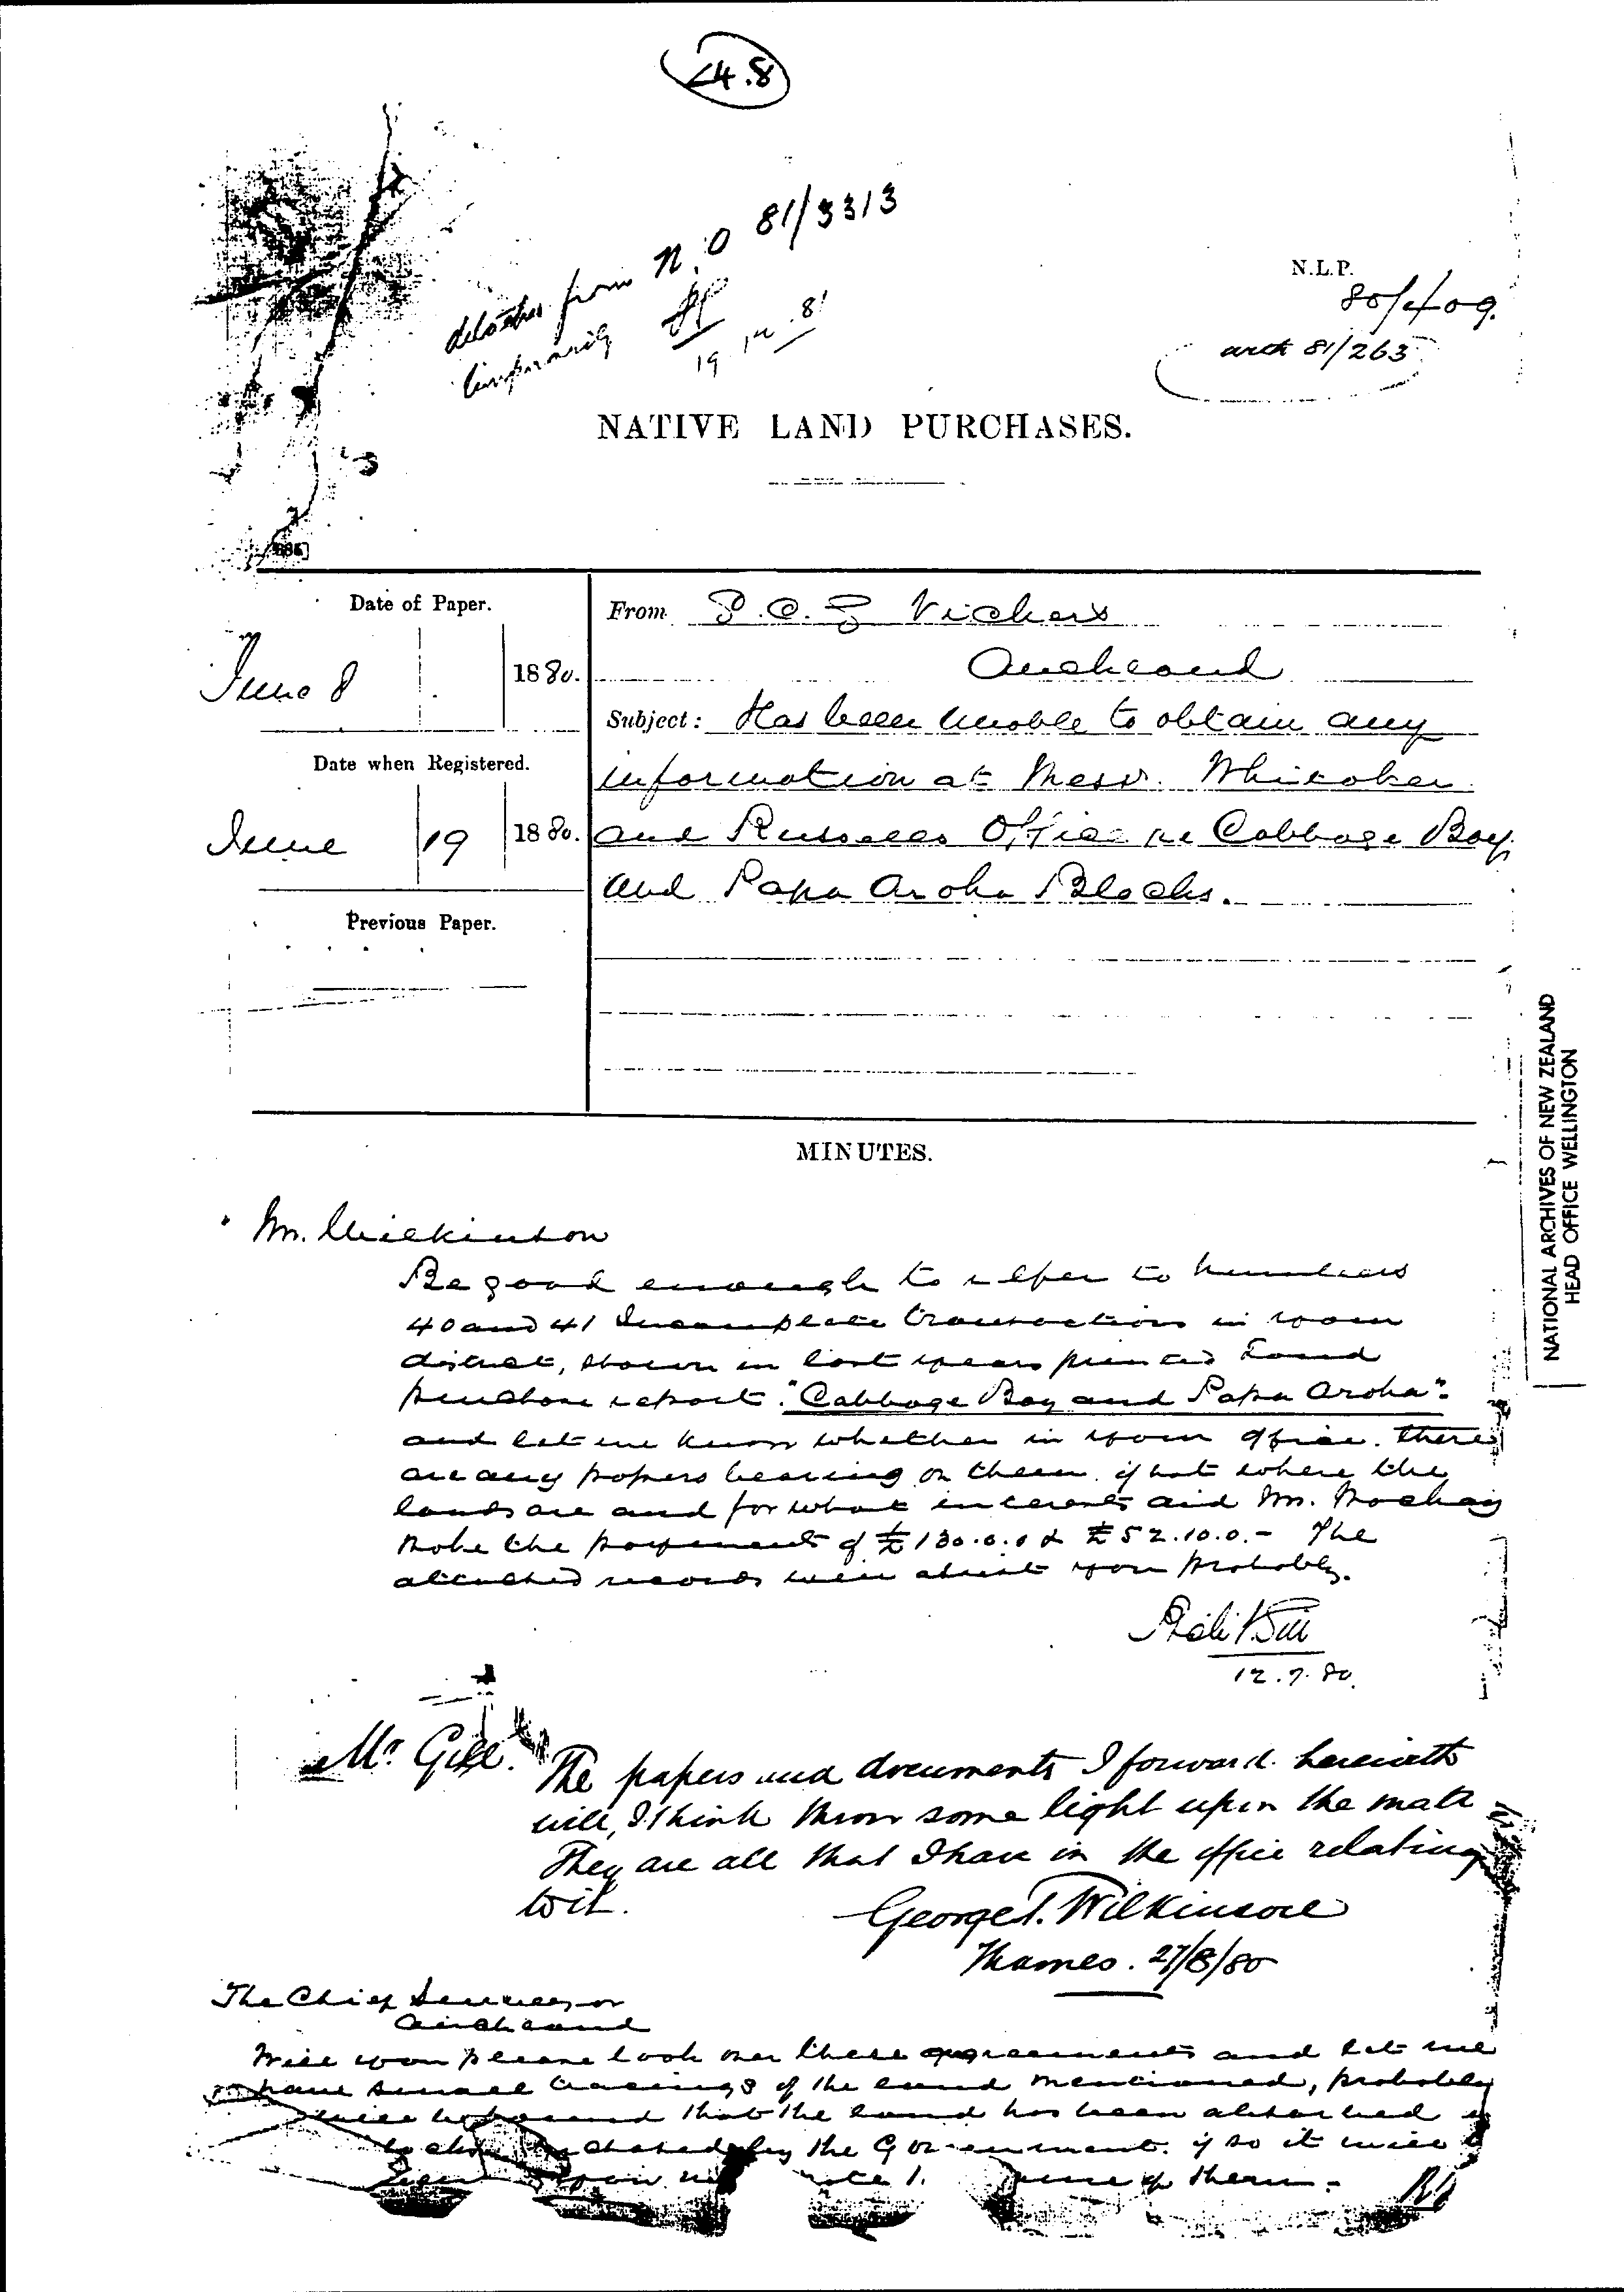 24.8
N.O 81/3313
detaches from
temporarily
19 81
N.L.P.
80/409.
arch 81/263
NATIVE LAND PURCHASES.
Date of Paper.
June 8
1880.
From Vickers
Auckland
Subject: Has been unable to obtain any
information at Messrs. Whitaker
and Russells Office re Cabbage Bay
and Papa Aroha Blocks.
Date when Registered.
June 19 1880.
Previous Paper.
MINUTES.
Mr. Wilkinson
Be good enough to refer to numbers
40 and 41 Incomplete transactions in your
district, shown in last years printed Land
purchase report. "Cabbage Bay and Papa Aroha".
and let me know whether in your office. there
are any papers bearing on them. if not where the
lands are and for what interests did Mr. Mackay
make the payments of £130.0.0 & £52.10.0.- The
attached records will assist you probably.
12.7.80.
Mr. Gill.
The papers and documents I forward herewith
will, I think throw some light upon the
They are all that I have in the office relating
to it.
George T. Wilkinson
Thames. 27/8/80
The Chief Surveyor
Auckland
Will you please look over these agreements and let me
have small tracings of the land mentioned, probably
that the land has been absorbed
by the Government. if so it will
of them.-
NATIONAL ARCHIVES OF NEW ZEALAND
HEAD OFFICE WELLINGTON